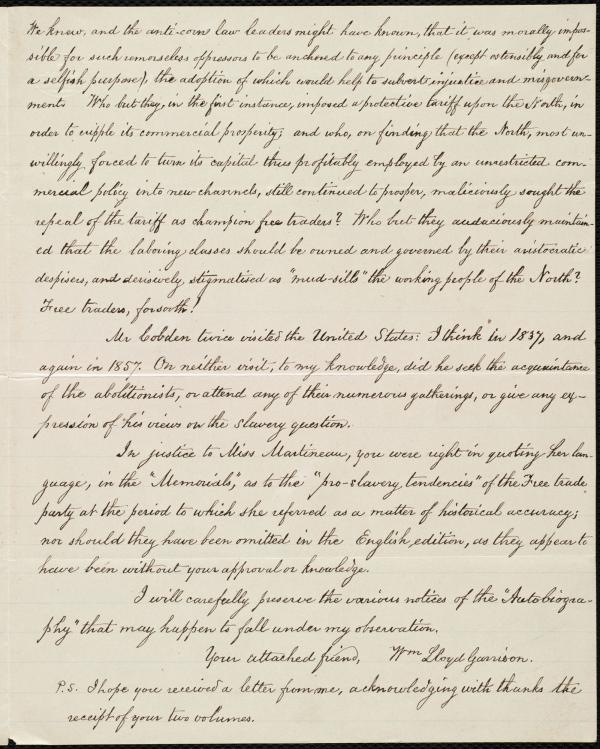 We knew, and the anti-corn law leaders might have known, that it was morally impos-
sible for such remorseless oppressors to be anchored to any principle (except ostensibly and for
a selfish purpose), the adoption of which would help to subvert injustice and misgovern-
ment. Who but they, in the first instance, imposed a protective tariff upon the North, in
order to cripple its commercial prosperity; and who, on finding that the North, most un-
willingly forced to turn its capital thus profitably employed by an unrestricted com-
mercial policy into new channels, still continued to prosper, maliciously sought the
repeal of the tariff as champion free traders? Who but they audaciously maintain-
ed that the laboring classes should be owned and governed by their aristocratic
despisers, and derisively stigmatised as "mud-sills" the working people of the North?
Free traders, forsooth!
Mr Cobden twice visited the United States: I think in 1837, and
again in 1857. On neither visit, to my knowledge, did he seek the acquaintance
of the abolitionists, or attend any of their numerous gatherings, or give any ex-
pression of his views on the slavery question.
In justice to Miss Martineau, you were right in quoting her lan-
guage, in the "Memorials," as to the "pro-slavery tendencies" of the Free trade
party at the period to which she referred as a matter of historical accuracy;
nor should they have been omitted in the English edition, as they appear to
have been without your approval or knowledge.
I will carefully preserve the various notices of the "Autobiogra-
phy" that may happen to fall under my observation.
Your attached friend, Wm Lloyd Garrison.
P.S. I hope you received a letter from me, acknowledging with thanks the
receipt of your two volumes.